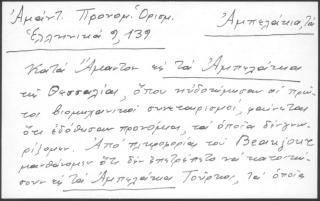 Ἀμάντ. Προνομ. Ὁρισμ.
Ἑλληνικά 9, 139
Ἀμπελάκια, τά
Κατά Ἄμαντον εἰς τά Ἀμπελάκια
τῆς Θεσσαλίας, ὅπου ηὐδοκίμησαν οἱ πρῶ-
τοι βιομηχανικοί συνεταιρισμοί, φαίνεται
ὅτι ἐδόθησαν προνόμια, τά ὁποῖα δέν γνω-
ρίζομεν. Ἀπό πληροφορίαν τοῦ Beaujour
μανθάνομεν ὅτι δέν ἐπετρέπετο νά κατοική-
σουν εἰς τά Ἀμπελάκια Τοῦρκοι, τά ὁποῖα